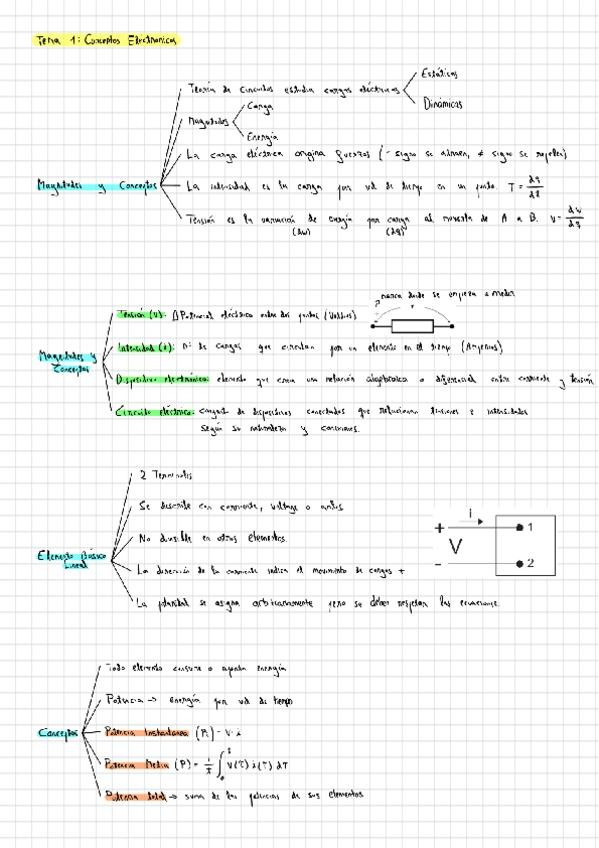 Tema 1: Conceptos Electronicos
Magnitudes y Conceptos
Teoría de circuitos estudia cargas eléctricas
Estáticas
Dinámicas
Magnitudes
Carga
Energía
La carga eléctrica origina fuerzas (- signo se atraen, ≠ signo se repelen)
La intensidad es la carga por ud de tiempo en un punto. I = dq/dt
Tensión es la variación de energía por carga al moverla de A a B. V = dw/dq
(dw) (dq)
Magnitudes y
Conceptos
marca donde se empieza a medir
Tensión (V): Δ Potencial eléctrico entre dos puntos (Voltios)
Intensidad (i): nº de cargas que circulan por un elemento en el tiempo (Amperios)
Dispositivo electrónico: elemento que crea una relación algebraica o diferencial entre corriente y tensión
Circuito eléctrico: conjunto de dispositivos conectados que relacionan tensiones e intensidades
según su naturaleza y conexiones.
Elemento Básico
Lineal
2 Terminales
Se describe con corriente, voltaje o ambos
No divisible en otros elementos
La dirección de la corriente indica el movimiento de cargas +
La polaridad se asigna arbitrariamente pero se deben respetar las ecuaciones
i
+ 1
V
- 2
Conceptos
Todo elemento consume o aporta energía
Potencia → energía por ud de tiempo
Potencia Instantanea (P) = v · i
Potencia Media (P) = 1/t ∫ V(τ) i(τ) dτ
Potencia total → suma de las potencias de sus elementos